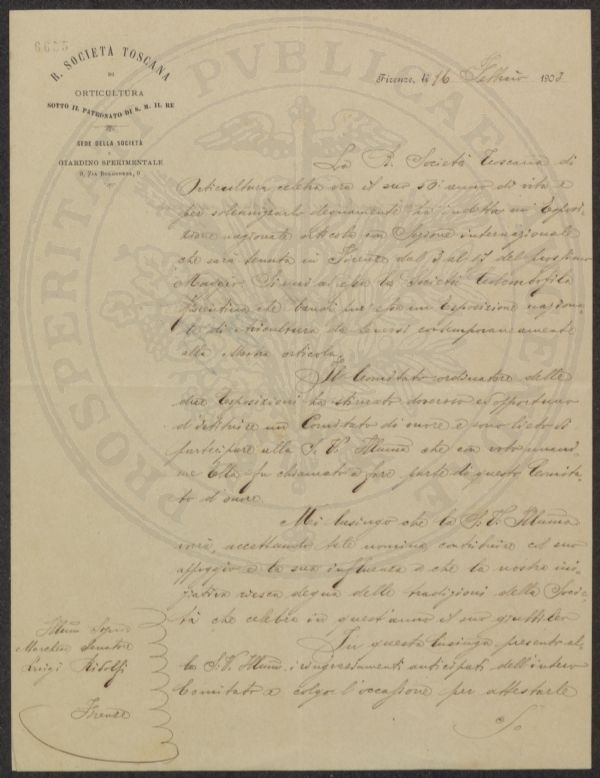 6655
R. SOCIETÀ TOSCANA
DI
ORTICULTURA
SOTTO IL PATRONATO DI S. M. IL RE
SEDE DELLA SOCIETÀ
E
GIARDINO SPERIMENTALE
9, Via Bolognese, 9
Firenze, li 16 Febbraio 1903
La R. Società Toscana di
Orticultura celebra ora il suo 50° anno di vita e
per solennizzarlo degnamente ha indetta un' Esposi-
zione nazionale orticola con Sezione internazionale
che sarà tenuta in Firenze dal 3 al 17 del prossimo
Maggio. Si unì ad essa la Società Colombofila
Fiorentina che bandì pur essa un Esposizione naziona-
le di Avicultura da tenersi contemporaneamente
alla Mostra orticola.
Il Comitato ordinatore delle
due Esposizioni ha stimato doveroso ed opportuno
d'istituire un Comitato di onore e sono lieto di
partecipare alla S. V. Illuma che con voto unani-
me Ella fu chiamato a fare parte di questo Comita-
to d'onore.
Mi lusingo che la S. V. Illuma
vorrà, accettando tale nomina, contribuire col suo
appoggio e la sua influenza a che la nostra ini-
ziativa riesca degna delle tradizioni della Socie-
tà che celebra in quest'anno il suo giubileo
In questa lusinga presento al-
la S. V. Illuma i ringraziamenti anticipati dell'intero
Comitato e colgo l'occasione per attestarle
Illumo Signor
Marchese Senatore
Luigi Ridolfi
Firenze
PROSPERITATI PVBLICAE